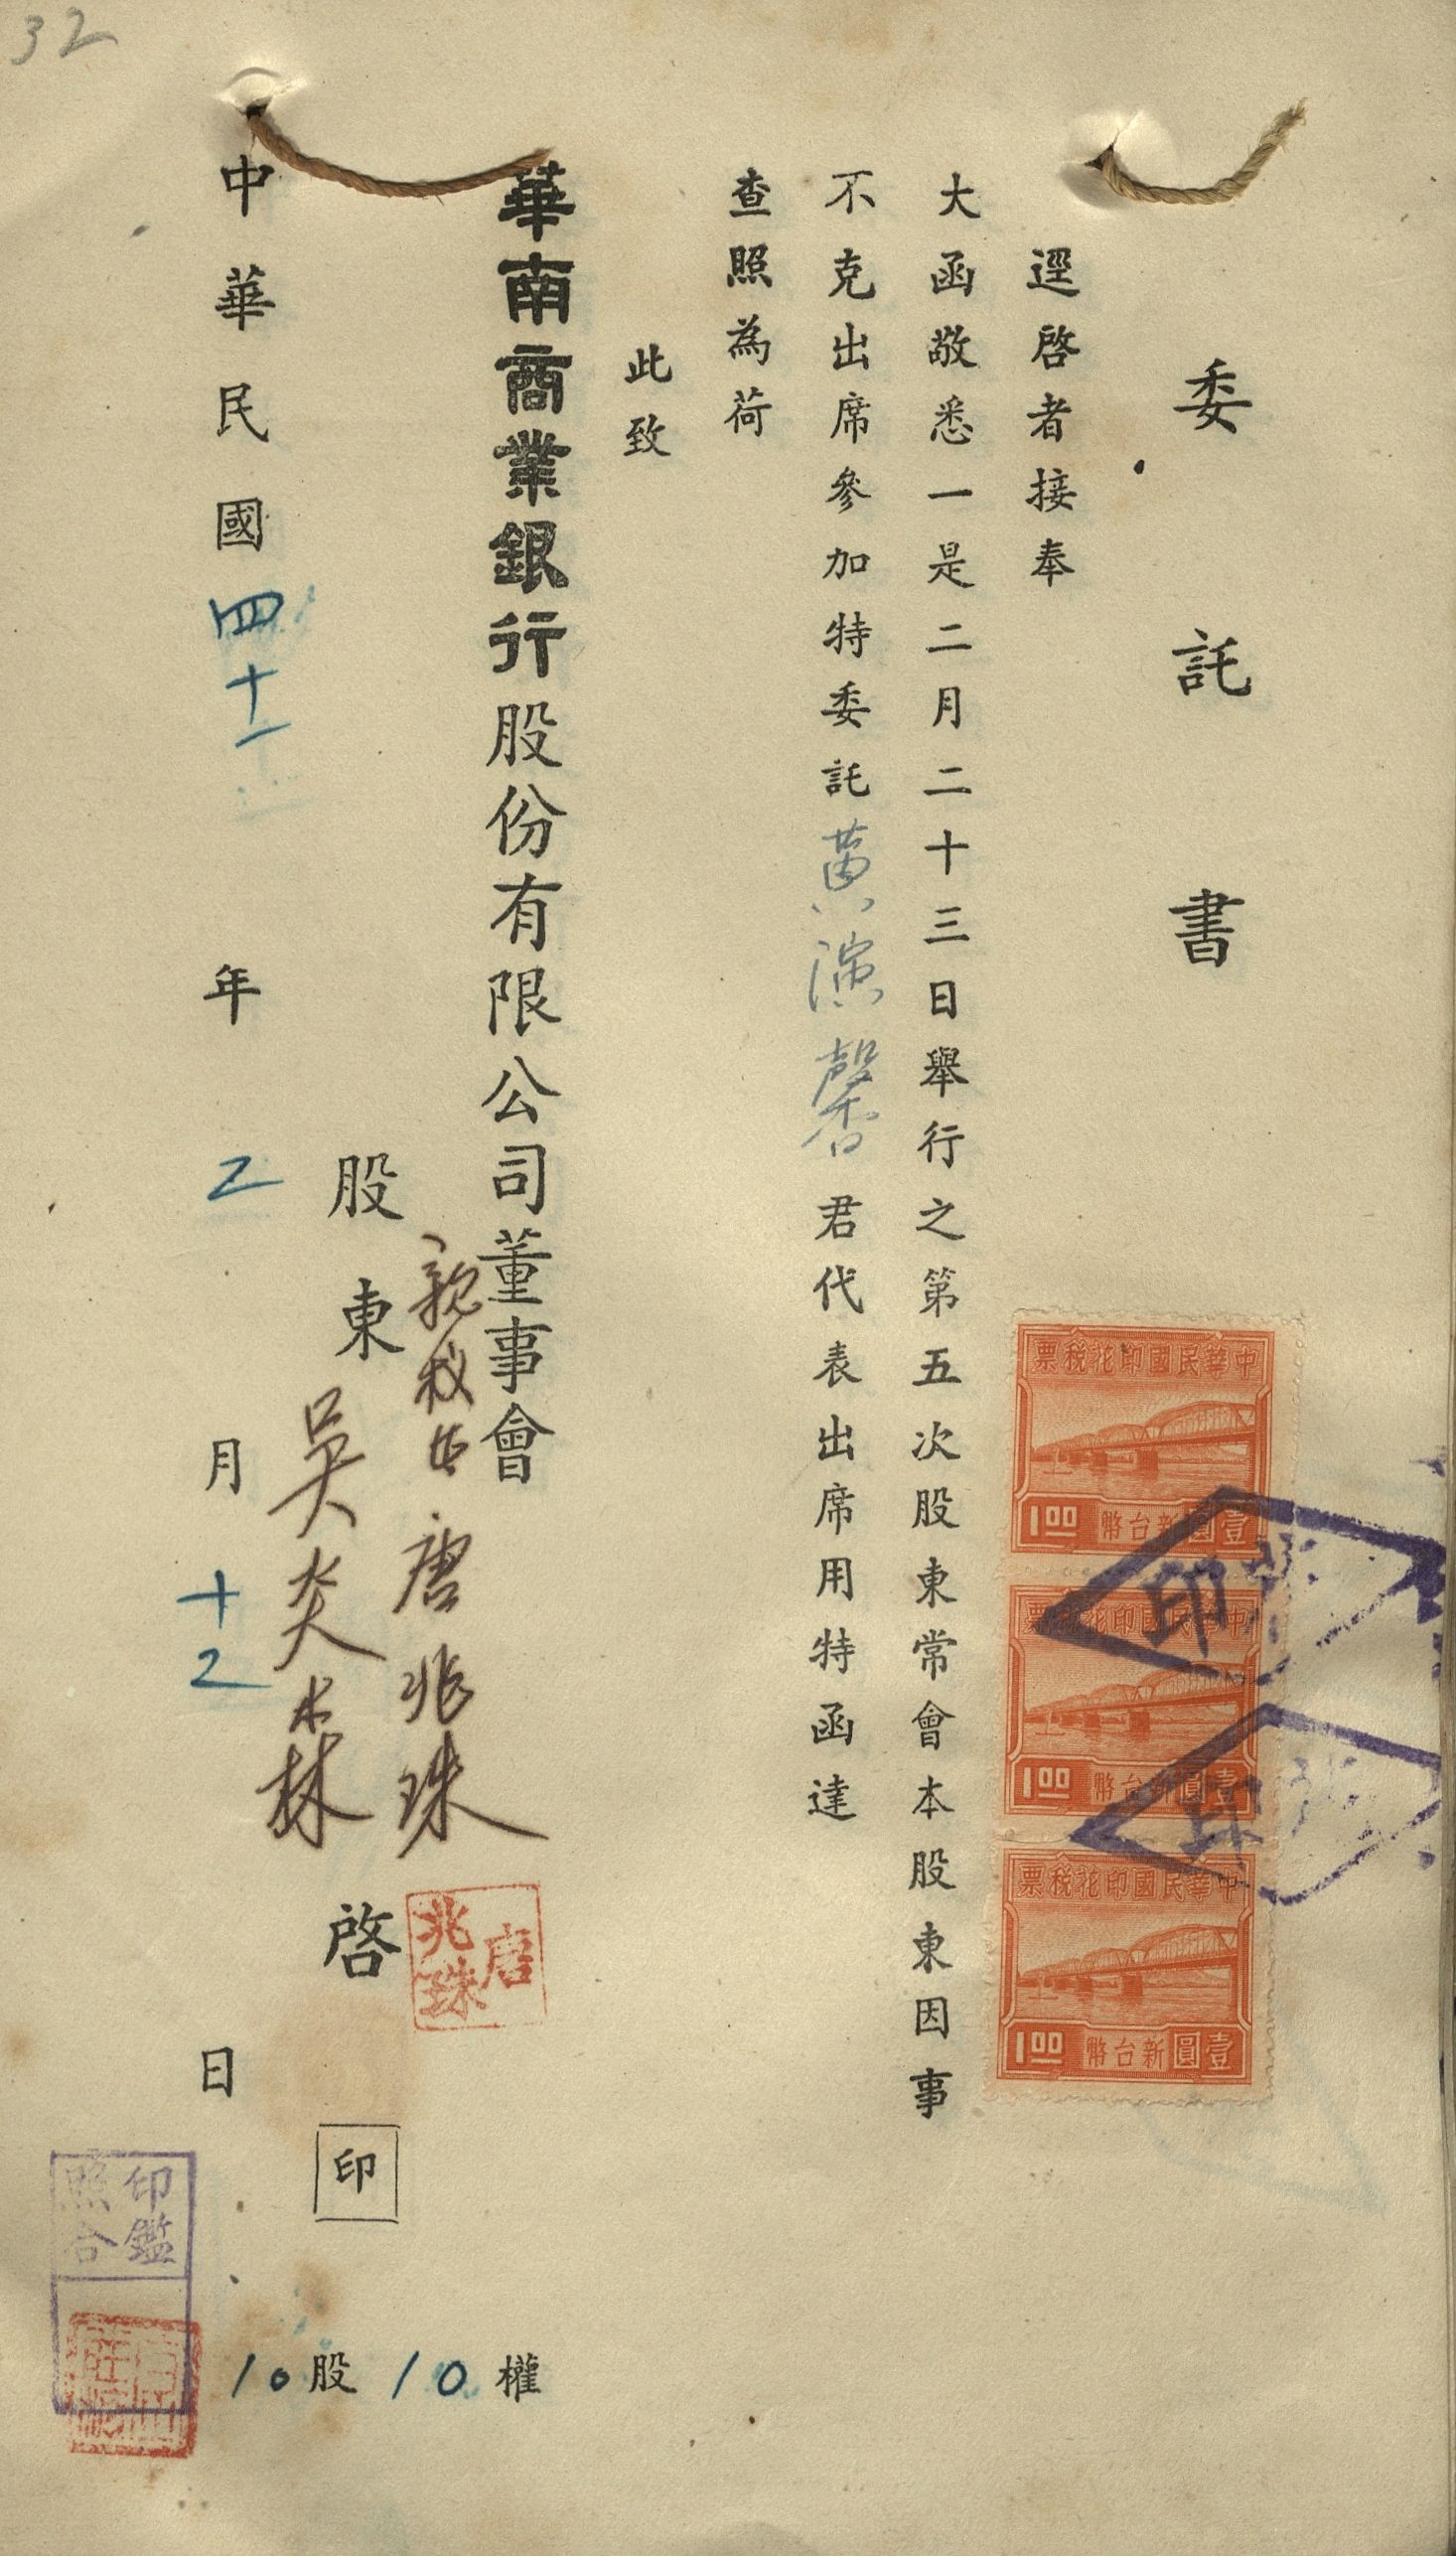 32
委託書
逕啓者接奉
大函敬悉一是二月二十三日舉行之第五次股東常會本股東因事
不克出席參加特委託黃演馨君代表出席用特函達
查照為荷
此致
華南商業銀行股份有限公司董事會
親權者 唐兆珠
股東 吳炎森 啓 印
唐兆珠
10股10權
中華民國四十一年2月十2日
印鑑
照合
中華民國印花稅票
1.00 壹圓新台幣
中華民國印花稅票
1.00 壹圓新台幣
中華民國印花稅票
1.00 壹圓新台幣
印
印